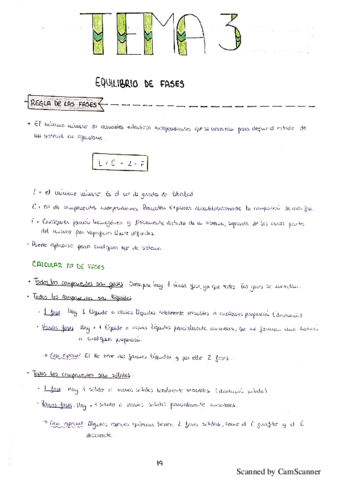 TEMA 3
EQUILIBRIO DE FASES
REGLA DE LAS FASES
• El mínimo número de variables intensivas independientes que se necesitan para definir el estado de
un sistema en equilibrio.
L = C + 2 - F
L = el mínimo número. Es el nº de grados de libertad
C = nº de componentes independientes. Permiten expresar cuantitativamente la composición de cada fase.
F = Cualquier porción homogénea y físicamente distinta de un sistema, separada de las otras partes
del mismo por superficies límite definidas.
• Puede aplicarse para cualquier tipo de sistema.
CALCULAR Nº DE FASES
• Todos los componentes son gases. Siempre hay 1 única fase, ya que todos los gases se mezclan.
• Todos los componentes son líquidos
- 1 fase. Hay 1 líquido o varios líquidos totalmente miscibles a cualquier proporción (disolución)
- Varias fases. Hay + 1 líquido o varios líquidos parcialmente miscibles, que no forman una
a cualquier proporción.
→ Caso especial: El He tiene dos formas líquidas y por ello 2 fases.
• Todos los componentes son sólidos
- 1 fase. Hay 1 sólido o varios sólidos totalmente miscibles (disolución sólida)
- Varias fases. Hay + 1 sólido o varios sólidos parcialmente miscibles.
→ Caso especial: Algunas especies químicas tienen 2 fases sólidas, como el C grafito y el C
diamante.
19
Scanned by CamScanner